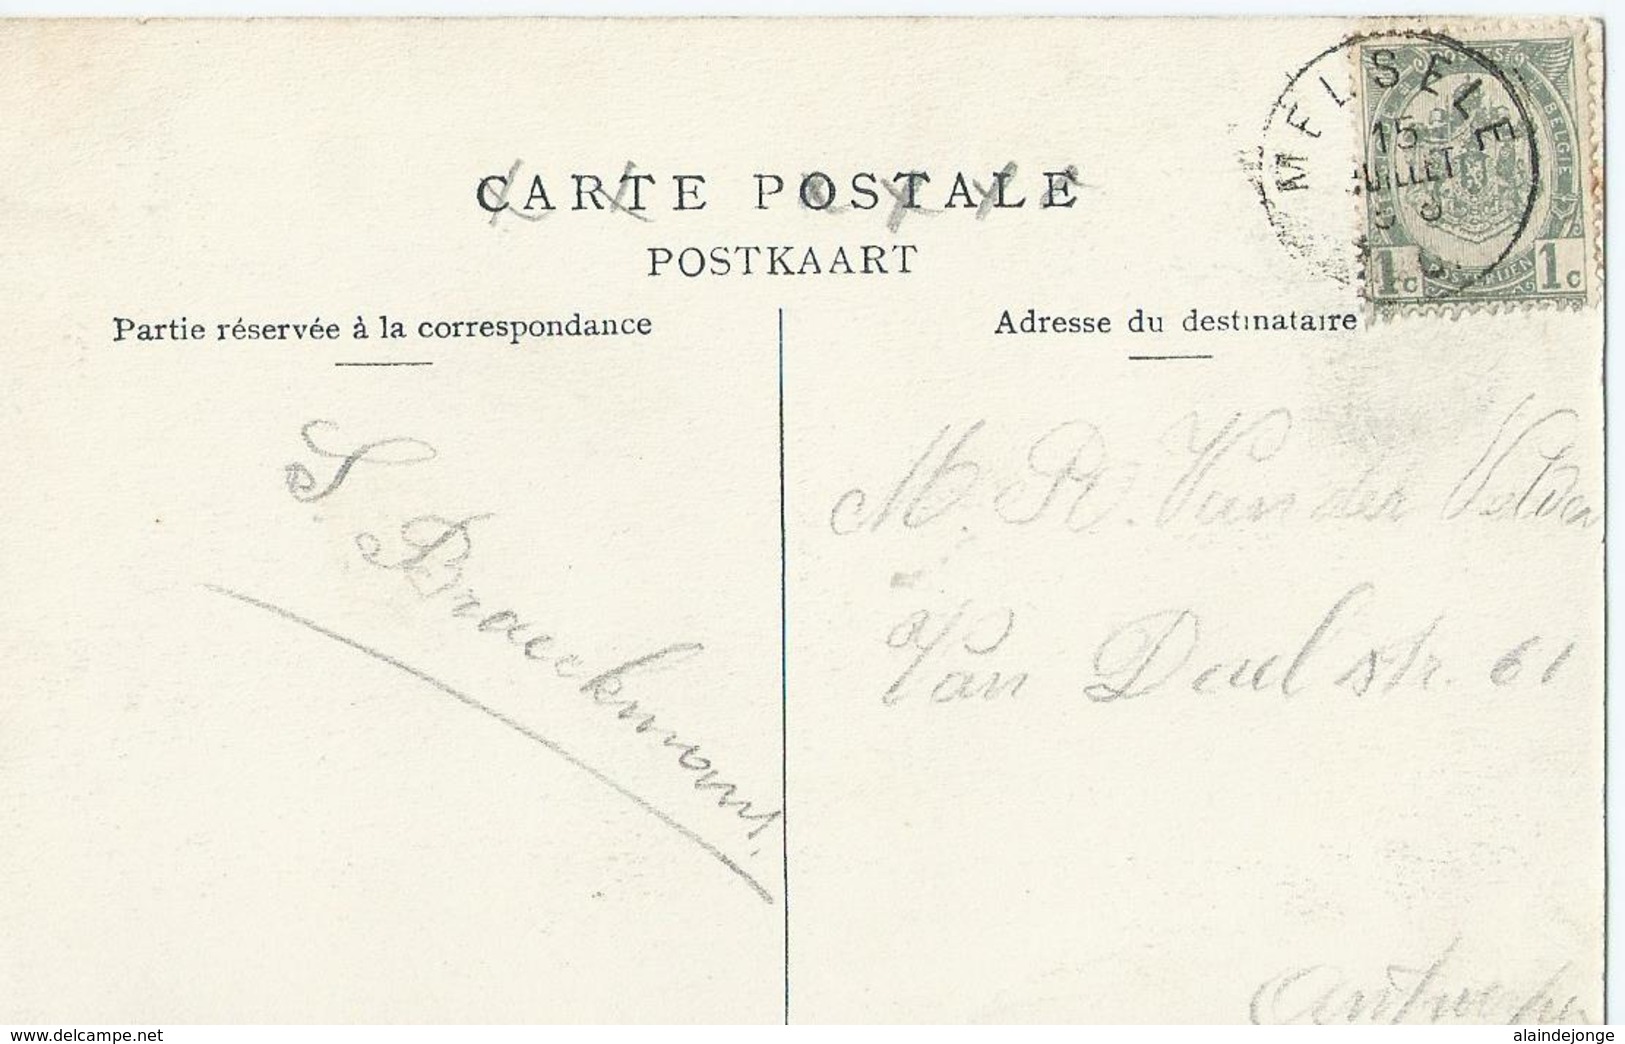 CARTE POSTALE
POSTKAART
Partie réservée à la correspondance
Adresse du destinataire
MELSELE
15
JUILLET
POSTES BELGIE
1c 1c
S. Braeckmans.
M. R. Van der Velden
Van Deul str. 61
Antwerpen
www.delcampe.net
alaindejonge